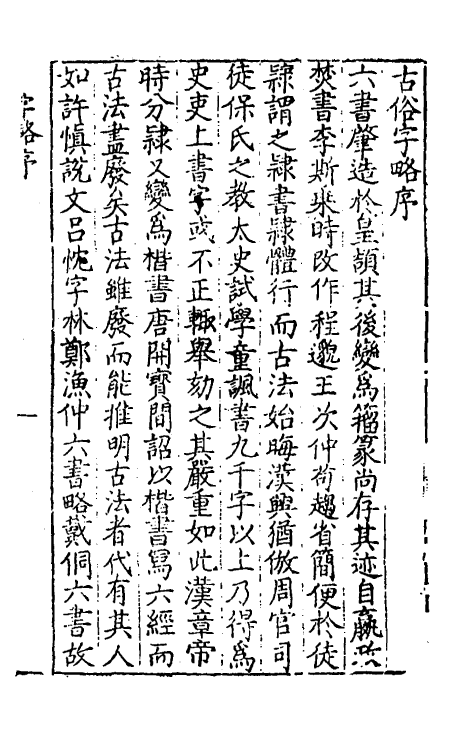 古俗字略序
六書肇造於皇頡其後變爲籀篆尚存其迹自嬴政
焚書李斯乘時改作程邈王次仲苟趨省簡便於徒
隸謂之隸書隸體行而古法始晦漢興猶倣周官司
徒保氏之教太史試學童諷書九千字以上乃得爲
史吏上書字或不正輙舉劾之其嚴重如此漢章帝
時分隸又變爲楷書唐開寳間詔以楷書寫六經而
古法盡廢矣古法雖廢而能推明古法者代有其人
如許慎說文吕忱字林鄭漁仲六書略戴侗六書故
字略序
一